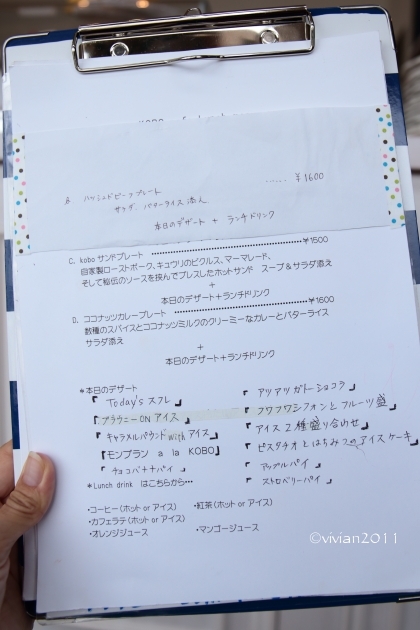 B ハッシュドビーフプレート ...... ¥1600
サラダ、バターライス添え
本日のデザート + ランチドリンク
C. kobo サンドプレート ¥1600
自家製ローストポーク、キュウリのピクルス、マーマレード、
そして秘伝のソースを挟んでプレスしたホットサンド スープ&サラダ添え
+
本日のデザート+ランチドリンク
D. ココナッツカレープレート ¥1600
数種のスパイスとココナッツミルクのクリーミーなカレーとバターライス
サラダ添え
+
本日のデザート+ランチドリンク
*本日のデザート
『Today's スフレ』
『ブラウニー ON アイス』
『キャラメルパウンド with アイス』
『モンブラン a la KOBO』
『チョコバナナパイ』
『アツアツガトーショコラ』
『フワフワシフォンとフルーツ盛』
『アイス2種盛り合わせ』
『ピスタチオとはちみつのアイスケーキ』
『アップルパイ』
『ストロベリーパイ』
*Lunch drink はこちらから…
・コーヒー(ホット or アイス) ・紅茶(ホット or アイス)
・カフェラテ(ホット or アイス)
・オレンジジュース ・マンゴージュース
©vivian2011